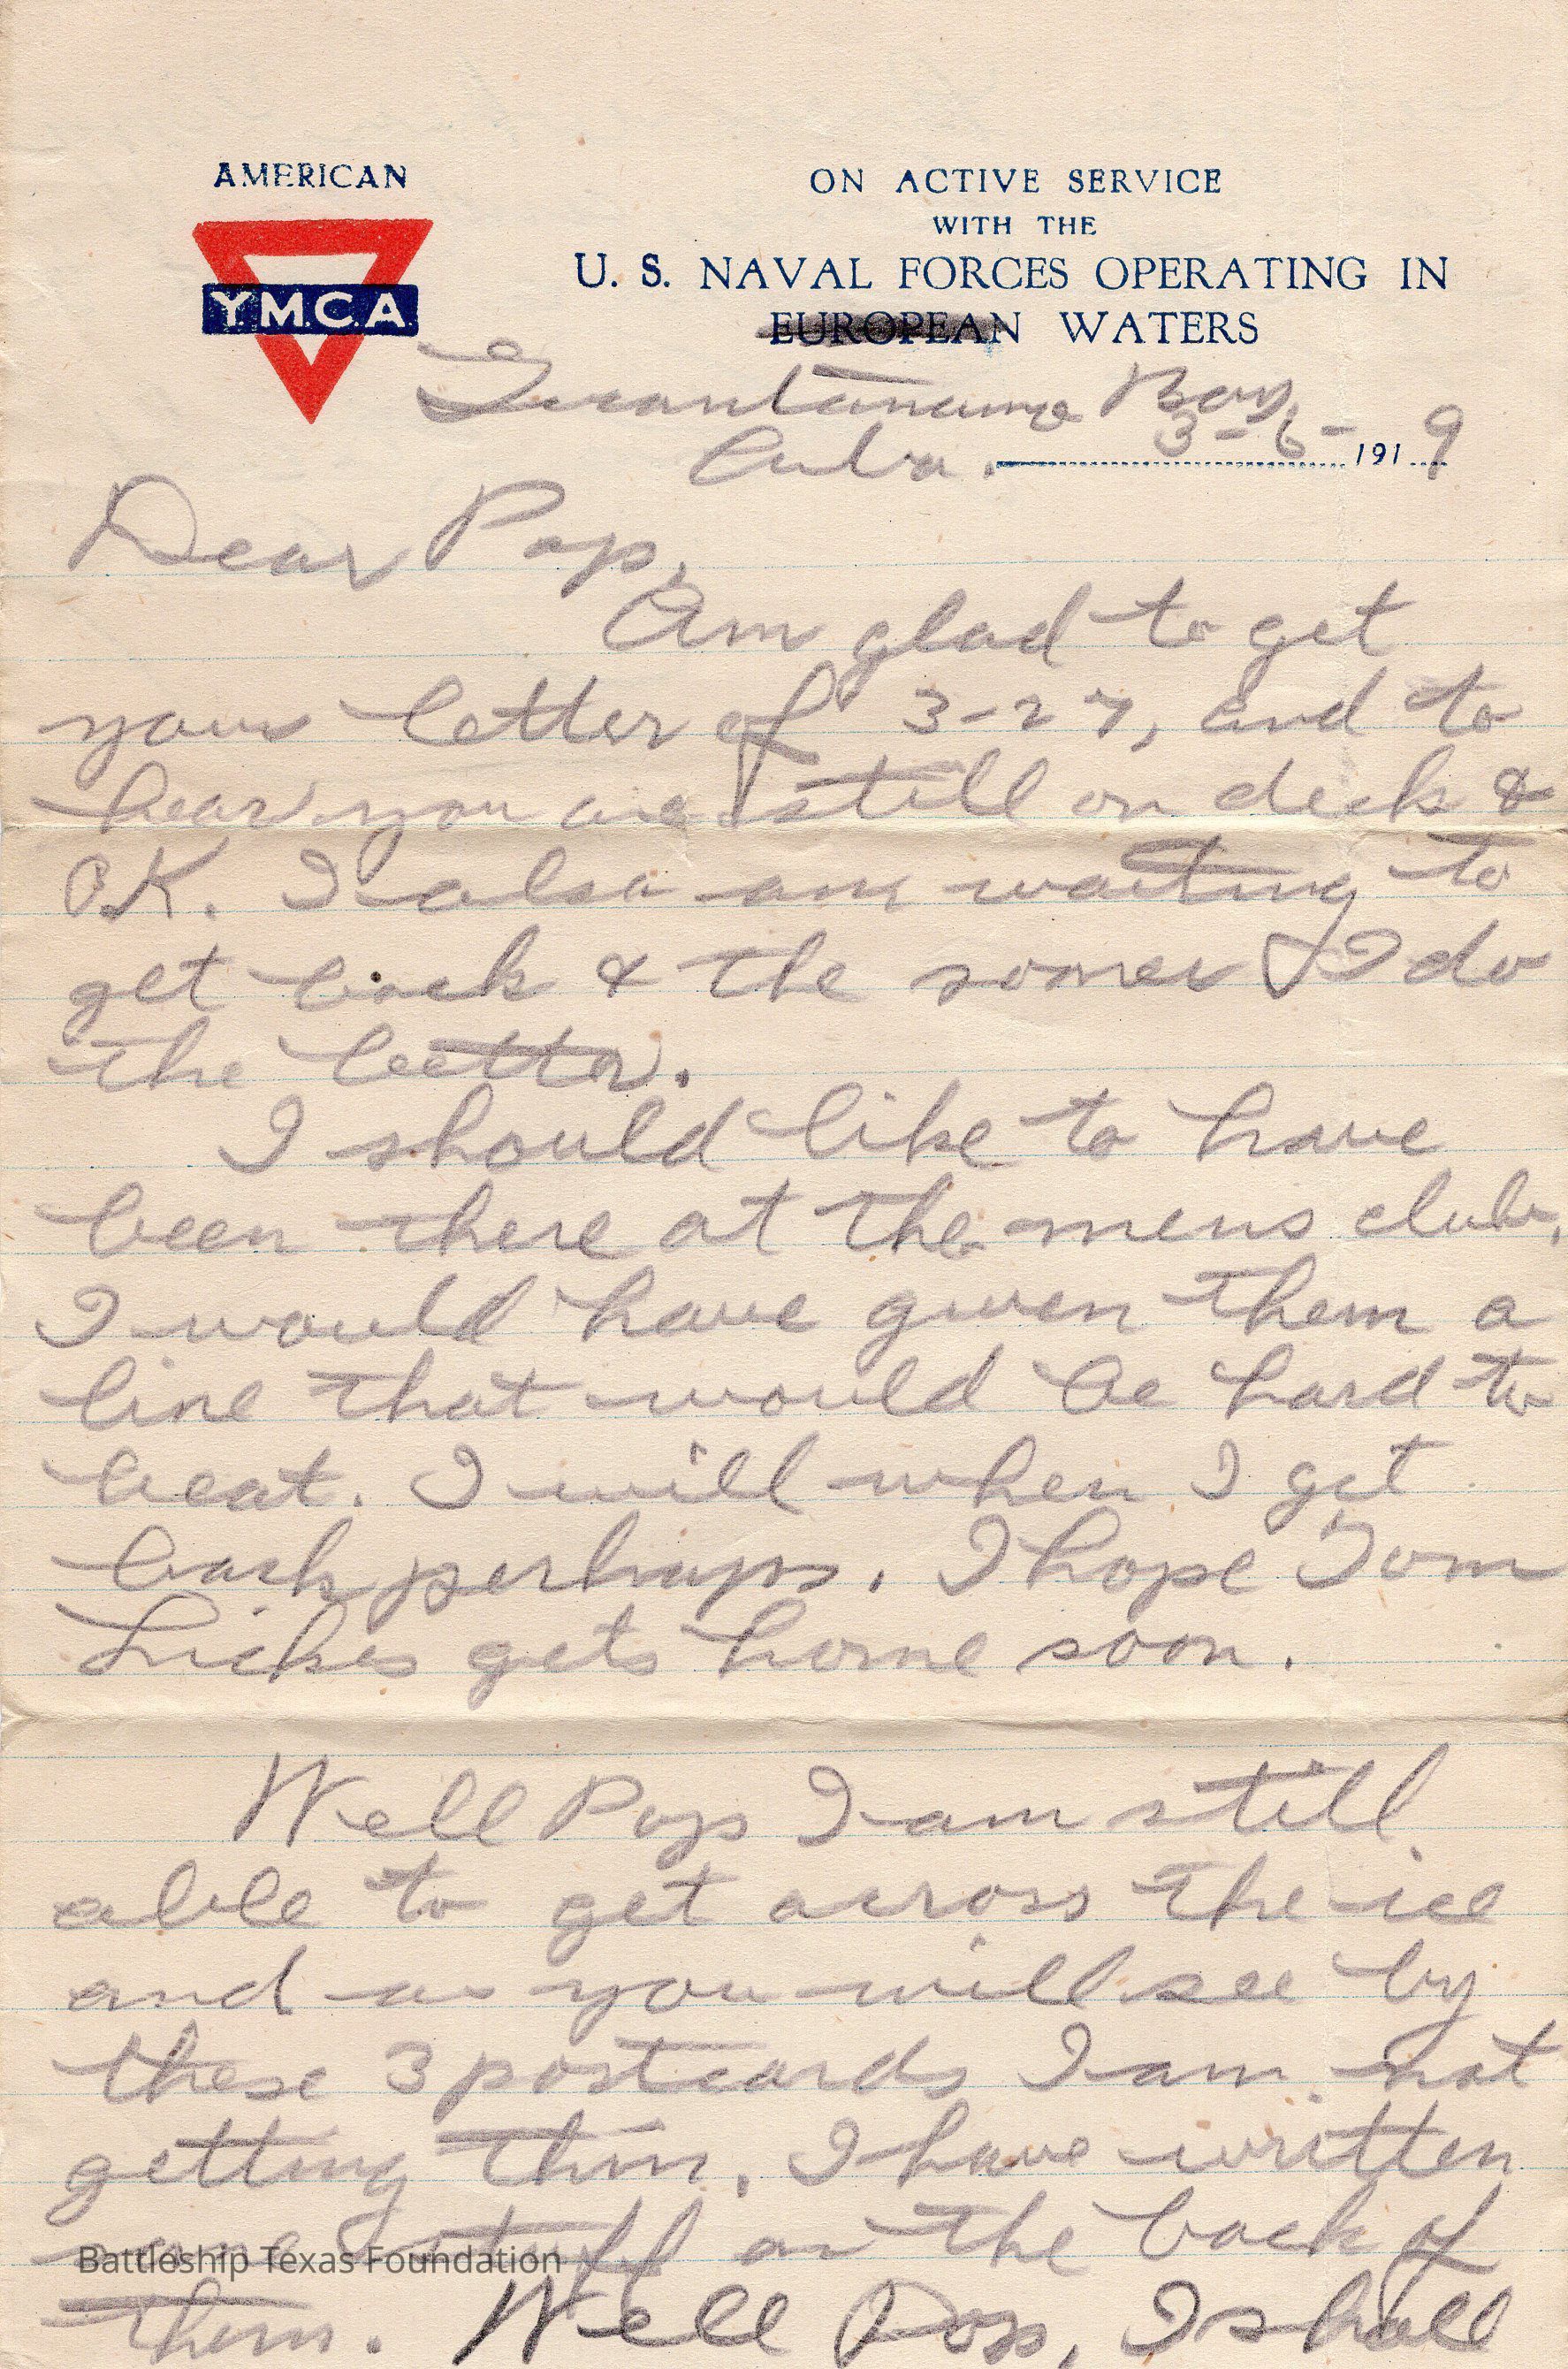 AMERICAN
Y.M.C.A.
ON ACTIVE SERVICE
WITH THE
U. S. NAVAL FORCES OPERATING IN
EUROPEAN WATERS
Guantanamo Bay,
Cuba. 3-6- 1919
Dear Pop,
Am glad to get
your letter of 3-27, and to
hear you are still on deck &
OK. I also am waiting to
get back & the sooner I do
the better.
I should like to have
been there at the mens club,
I would have given them a
line that would be hard to
beat. I will when I get
back perhaps. I hope Tom
Hickes gets home soon.
Well Pop I am still
able to get across the ice
and as you will see by
these 3 postcards I am not
getting thin. I have written
some stuff on the back of
Battleship Texas Foundation
them. Well Pop, I shall